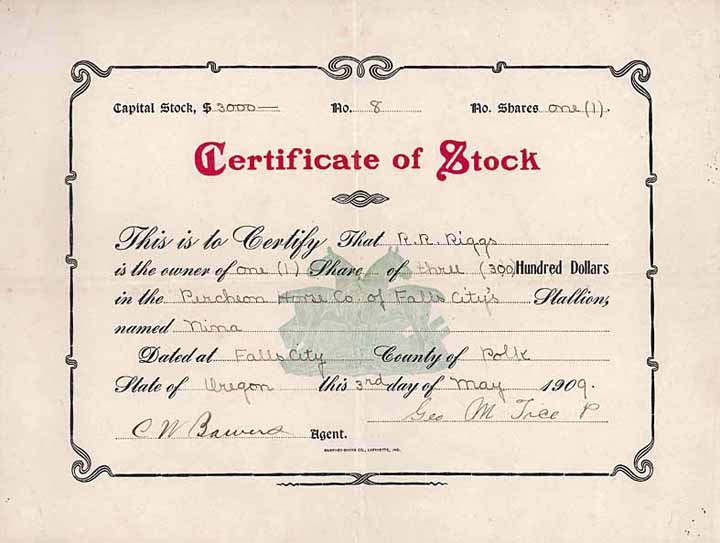 Capital Stock, $ 3000— No. 8 No. Shares one (1).
Certificate of Stock
This is to Certify That R.R. Riggs
is the owner of one (1) Share of three (300) Hundred Dollars
in the Percheon Horse Co. of Falls City's Stallion,
named Nima
Dated at Falls City County of Polk
State of Oregon this 3rd day of May 1909.
Geo M Tice P
C W Bowers Agent.
LAFAYETTE, IND.